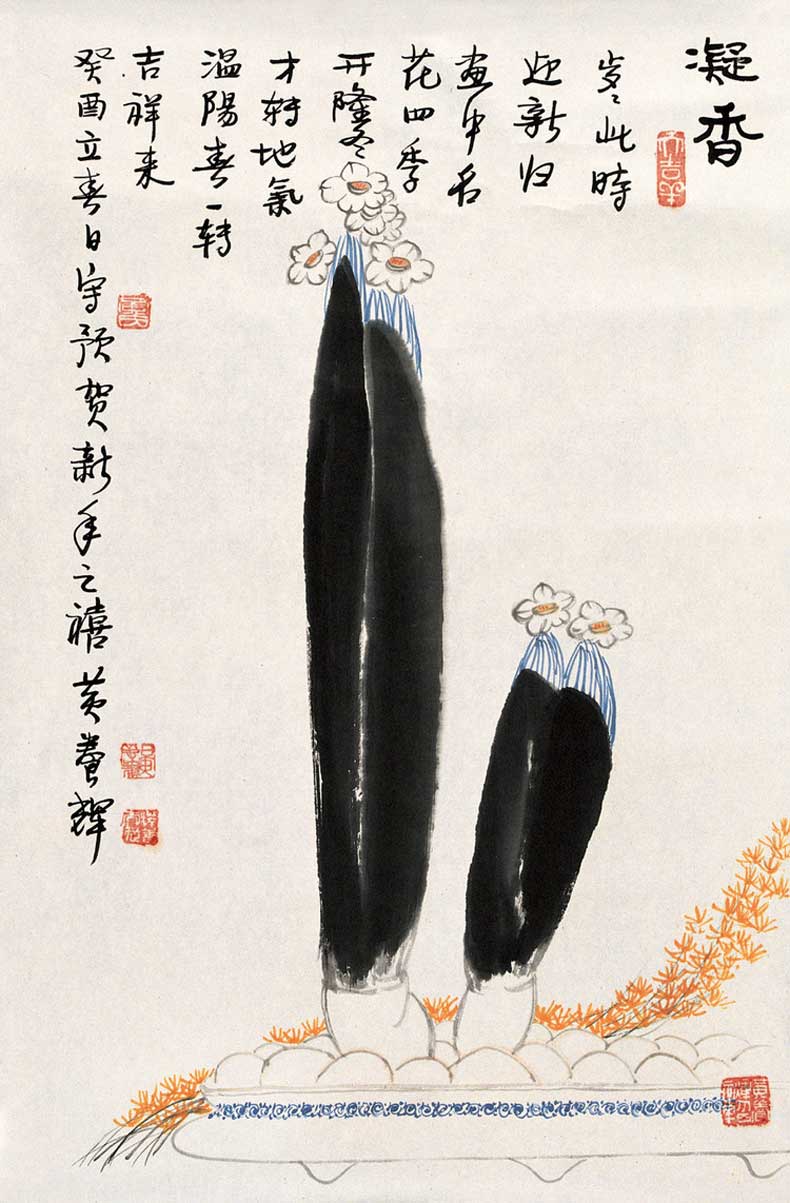 凝香
大吉羊
岁〻此時
迎新归
畫中名
花四季
开隆冬
才转地氣
温陽春一转
吉祥来
癸酉立春日守预贺新年之禧黄養辉